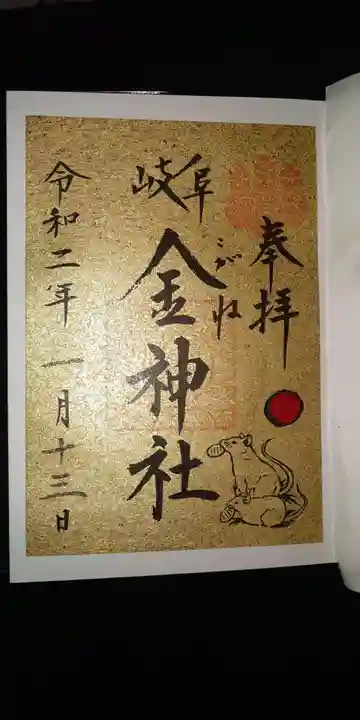 奉拝
岐阜
こがね
金神社
令和二年 一月十三日